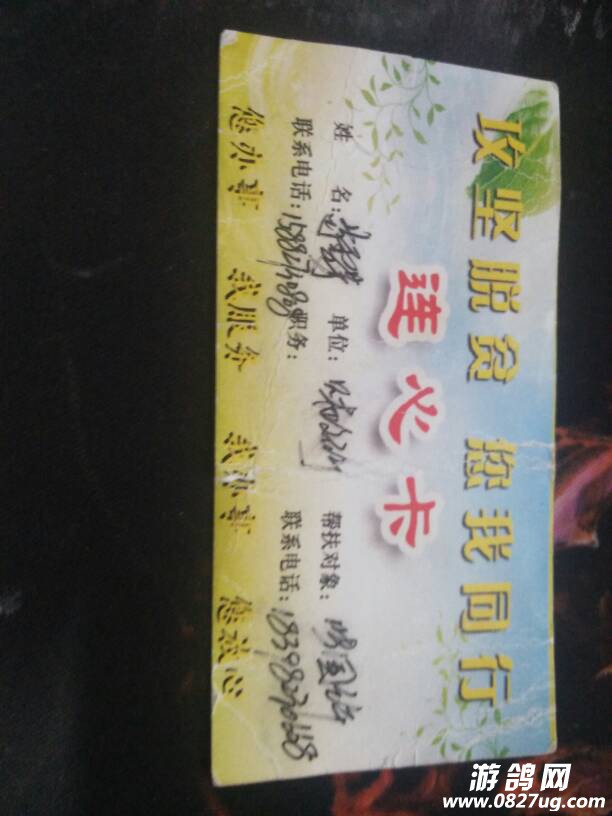 攻坚脱贫 您我同行
连心卡
姓 名: 单位: 帮扶对象:
联系电话: 职务: 联系电话:18398270668
您办事 我服务 我办事 您放心
游鸽网
www.0827ug.com